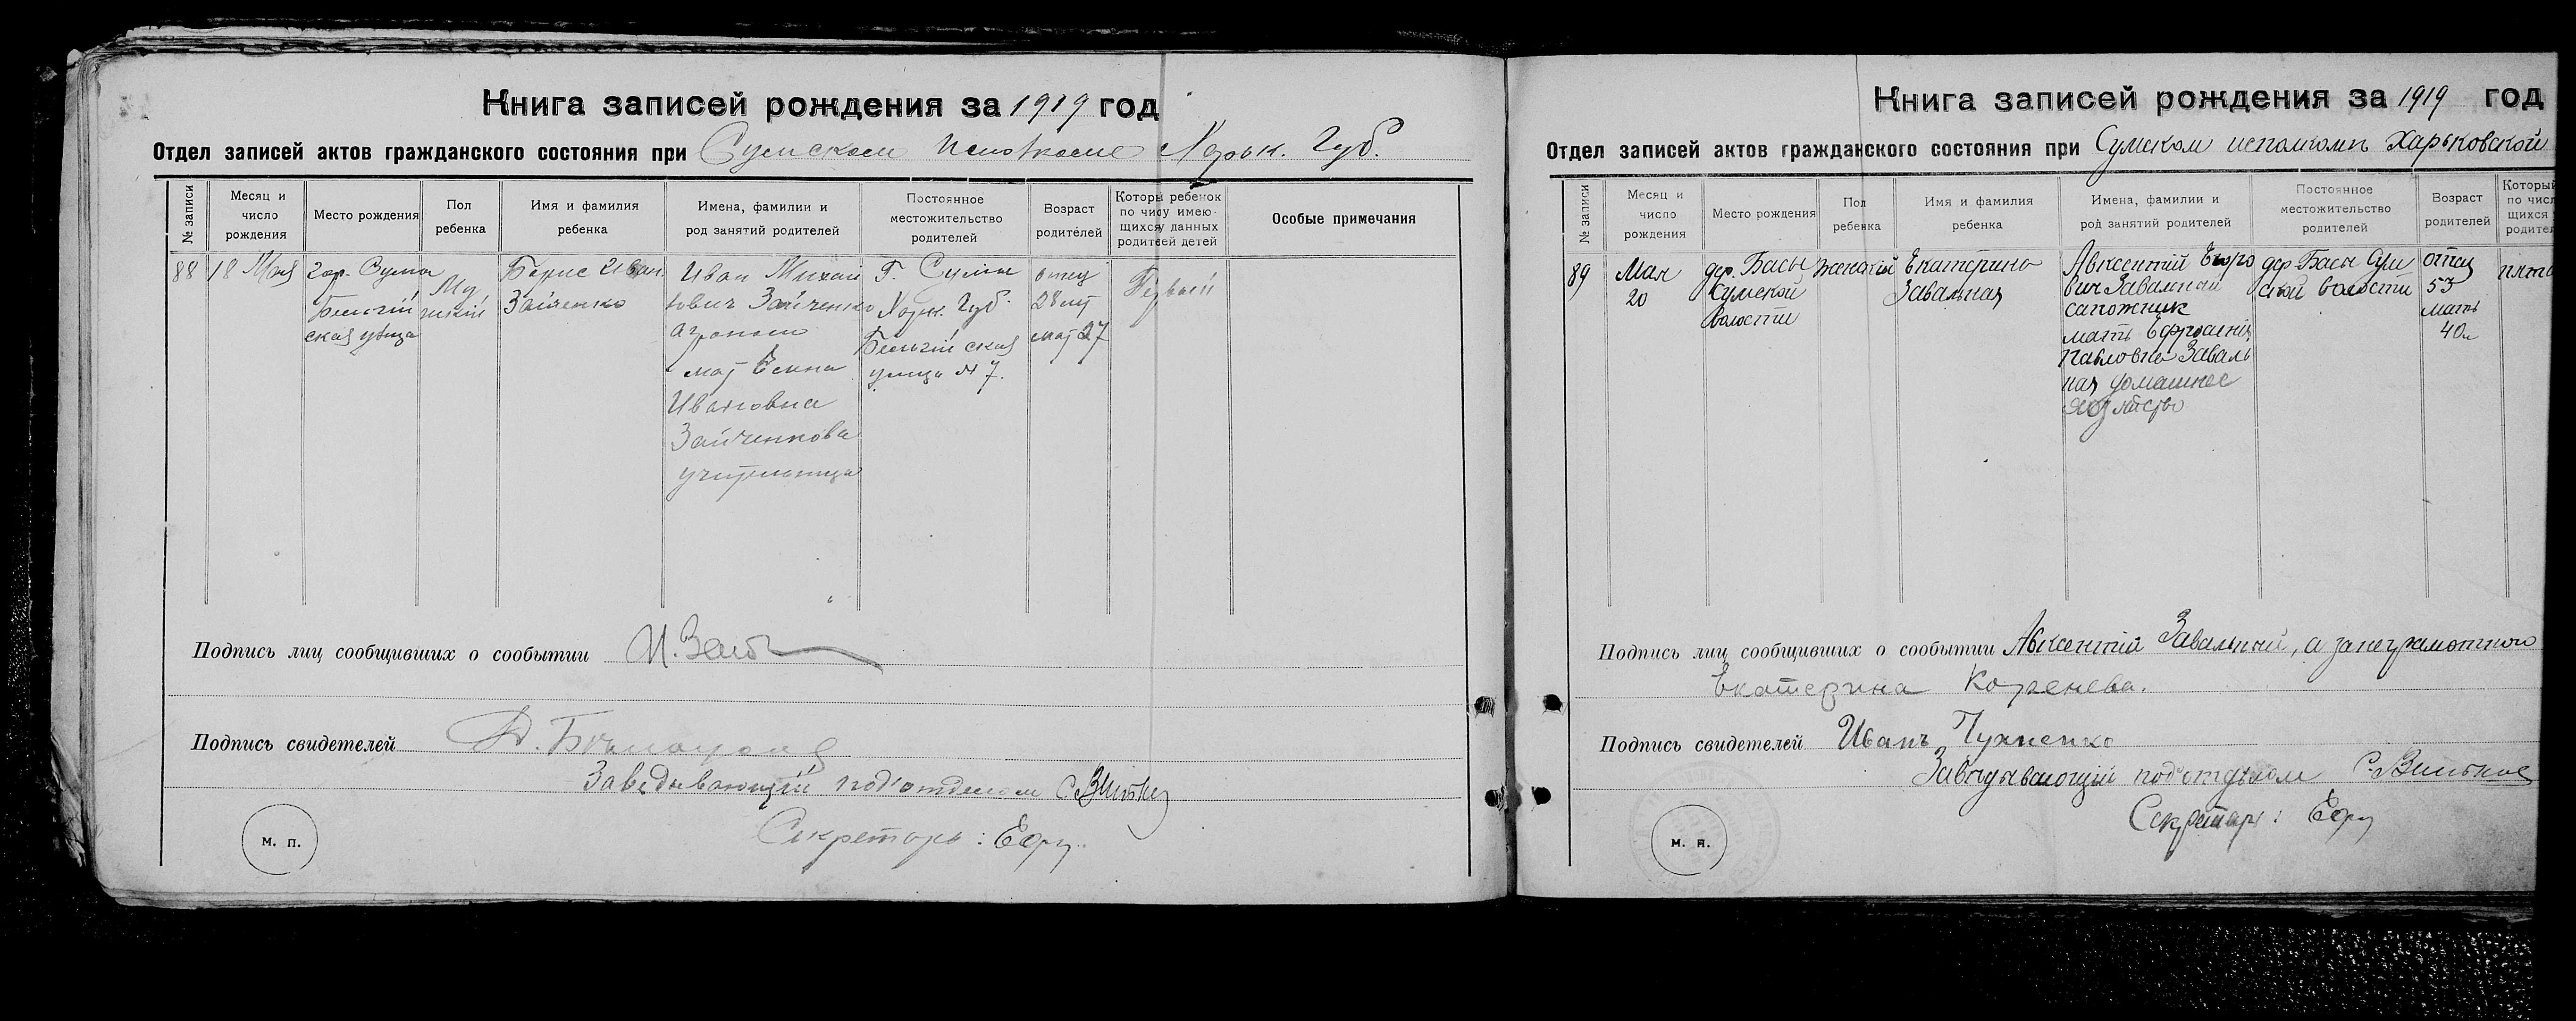 Книга записей рождения за 1919 год
Отдел записей актов гражданского состояния при Сумском Исполкоме Харьк. Губ.
№ записи
Месяц и число рождения
Место рождения
Пол ребенка
Имя и фамилия ребенка
Имена, фамилии и род занятий родителей
Постоянное местожительство родителей
Возраст родителей
Которы ребенок по чису имею-щихся у данных родитеей детей
Особые примечания
88
18 Мая
гор. Сумы
Бельгій
ская улица
Му
жскій
Борис Иван
Зайченко
Иван Михай
лович Зайченко
агроном
мат Елена
Ивановна
Зайченкова
учительница
Г. Сумы
Харьк. Губ.
Бельгійская
улица № 7.
отец
28 лет
мат 27
Первый
Подпись лиц сообщивших о сообытии
Подпись свидетелей
Заведывающій под'отделом
Секретарь:
м. п.
Книга записей рождения за 1919 год
Отдел записей актов гражданского состояния при Сумском исполкомъ Харьковской
№ записи
Месяц и число рождения
Место рождения
Пол ребенка
Имя и фамилия ребенка
Имена, фамилии и род занятий родителей
Постоянное местожительство родителей
Возраст родителей
Который
по числ
щихся у
родител
89
Мая
20
дер. Басы
Сумской
волости
женскій
Екатерина
Завальная
Авксентій Егоро
вич Завальный
сапожник
мать Ефросинія
Павловна Заваль
ная домашнее
хозяйство
дер. Басы Сум
ской волости
отец
53
мать
40 л
пято
Подпись лиц сообщивших о сообытии Авксентій Завальный, а за неграмотного
Екатерина Коренева.
Подпись свидетелей Иванъ
Завѣдывающій под'отдѣлом
Секретарь:
м. п.